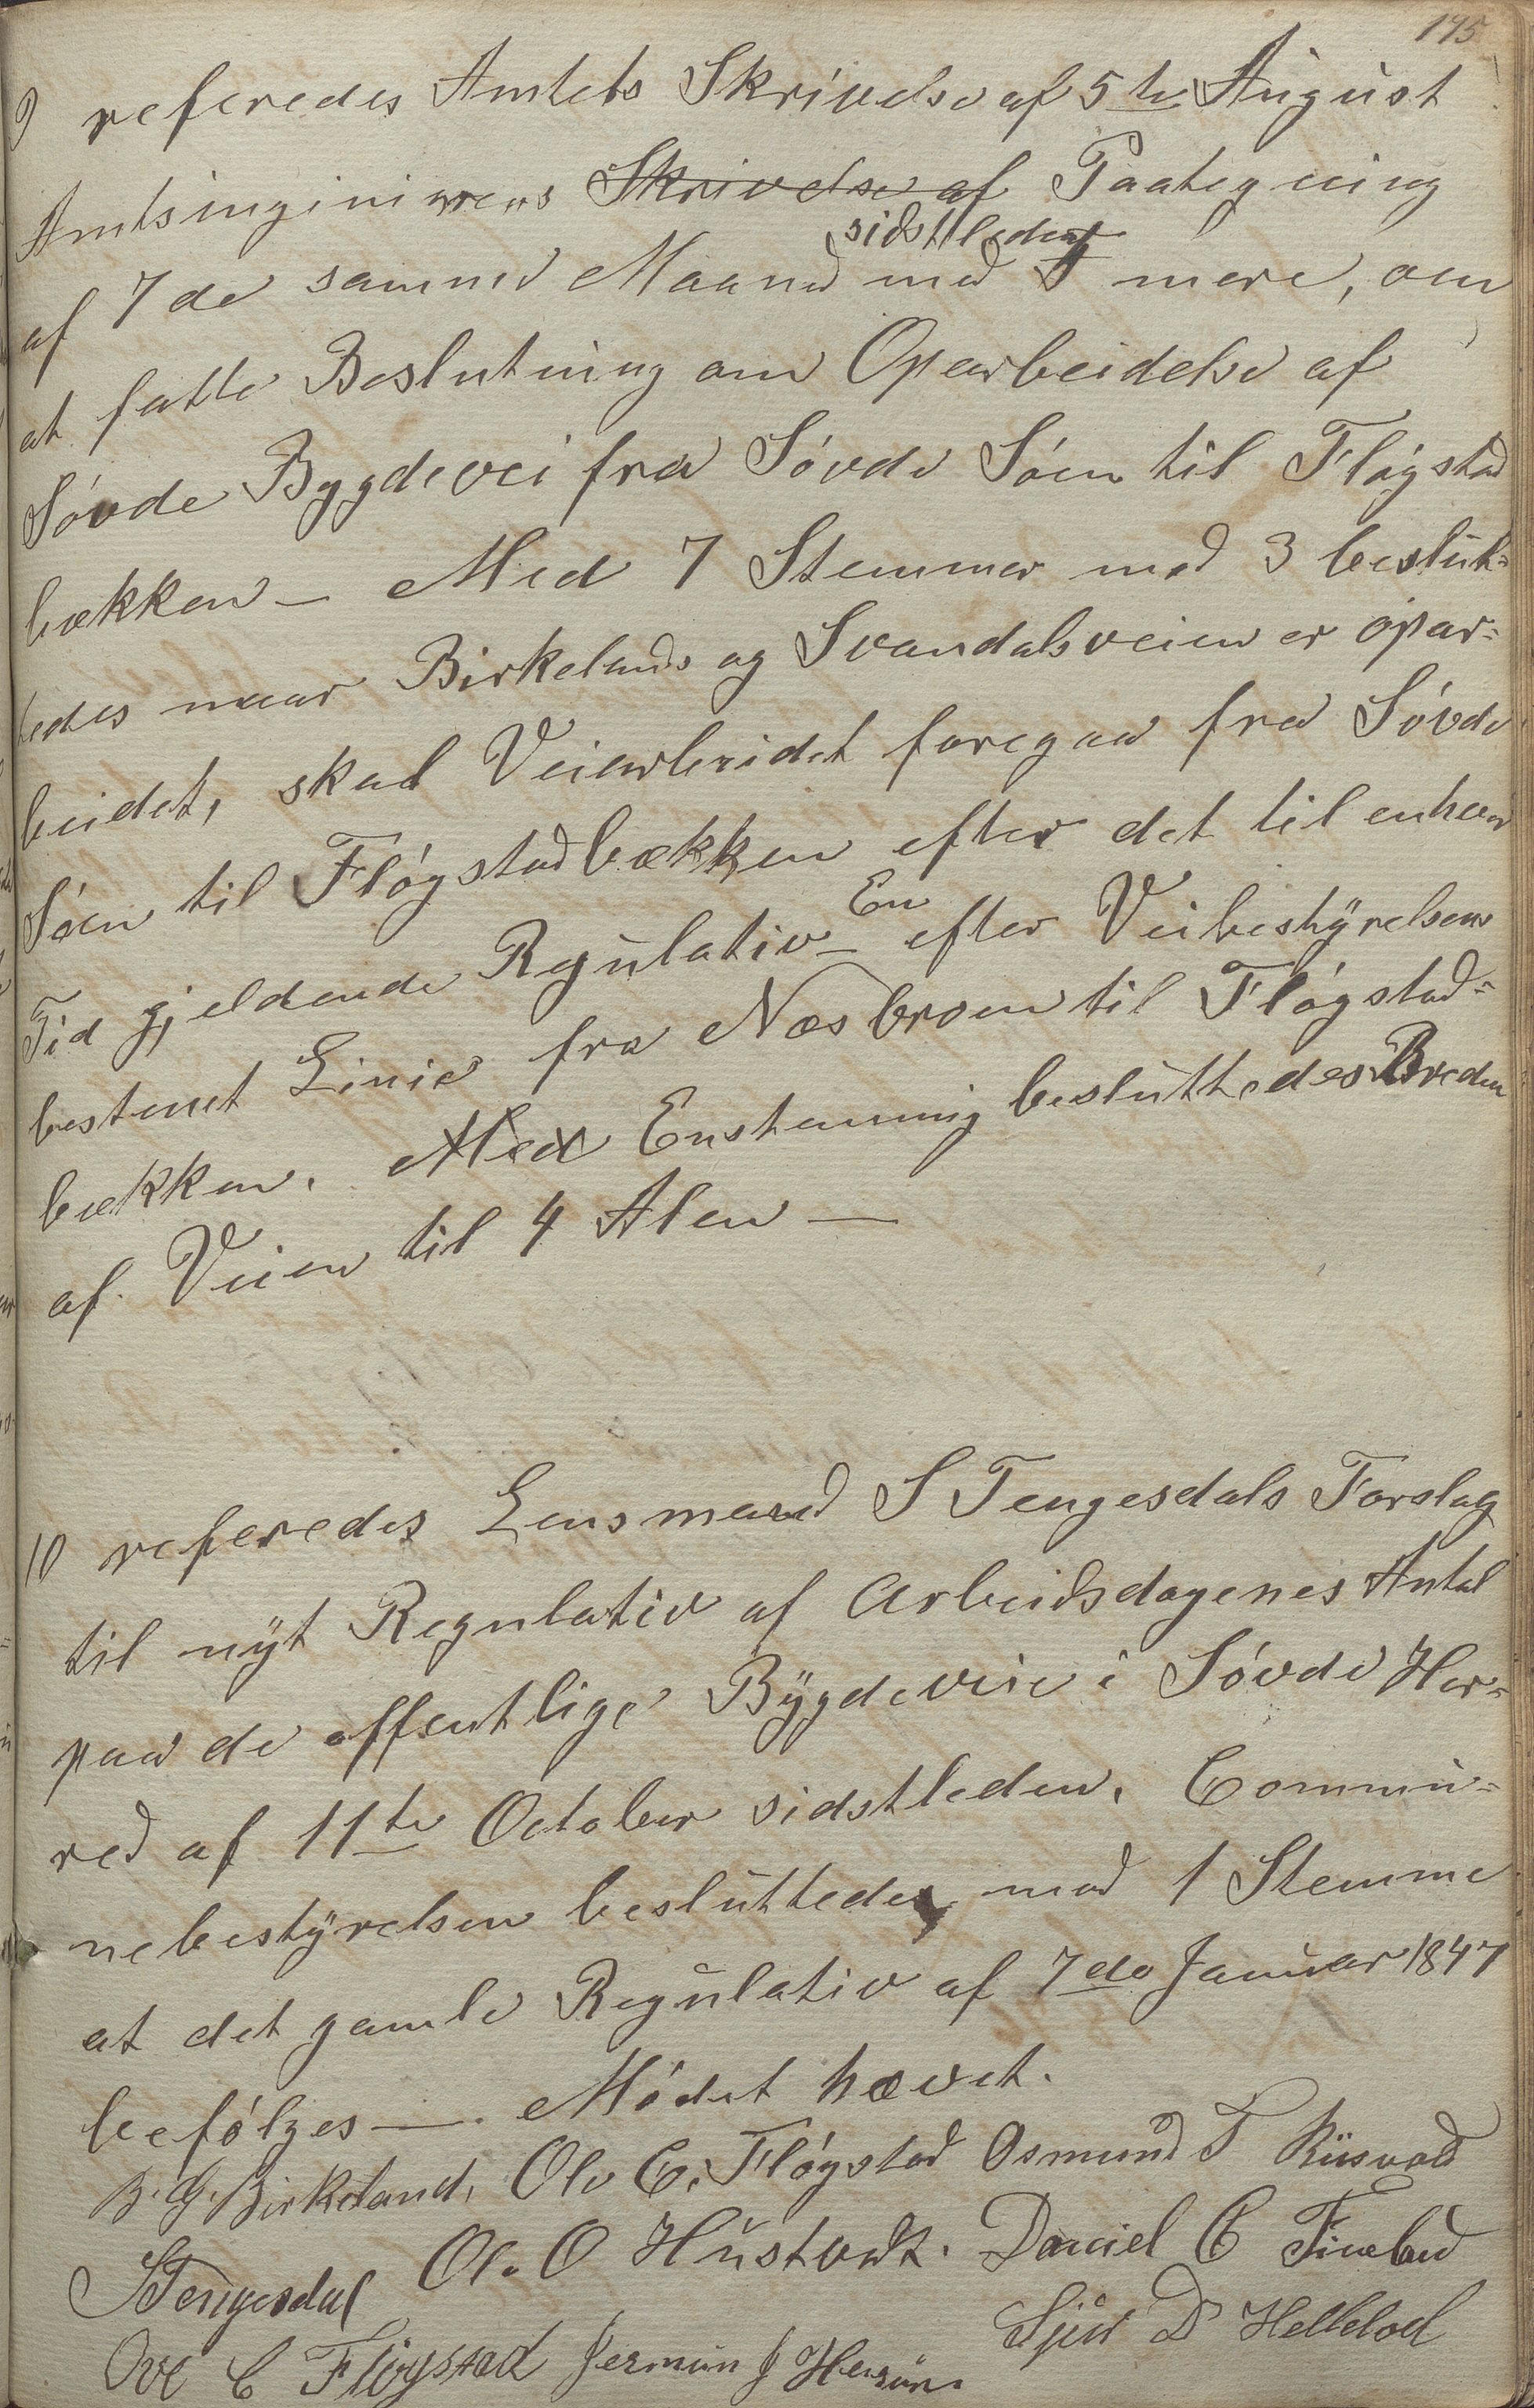 175
9 referedes Amtets Skrivelse af 5te August
Amtsinginieurens Skrivelse af Paategning
sidstleden
af 7de samme Maaned med mere, om
at fatte Beslutning om Oparbeidelse af
Søvde Bygdevei fra Søvde Søen til Fløgstad
bækken – Med 7 Stemmer mod 3 beslut-
tedes naar Birkelands og Svandalsveien er opar-
beidet, skal Veiarbeidet foregaa fra Søvde
Søen til Fløgstadbækken efter det til enhver
Tid gjeldende Regulativ – En efter Veibestyrelsens
bestemt Linie fra Næsbroen til Fløgstad-
bækken. Med Enstemmig besluttedes Breden
af Veien til 4 Alen –
10 referedes Lensmand S Tengesdals Forslag
til nyt Regulativ af Arbeidsdagenes Antal
paa de offentlige Bygdeveie i Søvde Her-
red af 11te October sidstleden. Commu-
nebestyrelsen besluttede mod 1 Stemme
at det gamle Regulativ af 7de Januar 1847
befølges –. Mødet hævet.
B. G. Birkeland, Ole C. Fløgstad Osmund T Riisvad
STengesdal Ole O Hustvedt. Daniel C
Ove C Fløgstad J Sjur D Hellelod